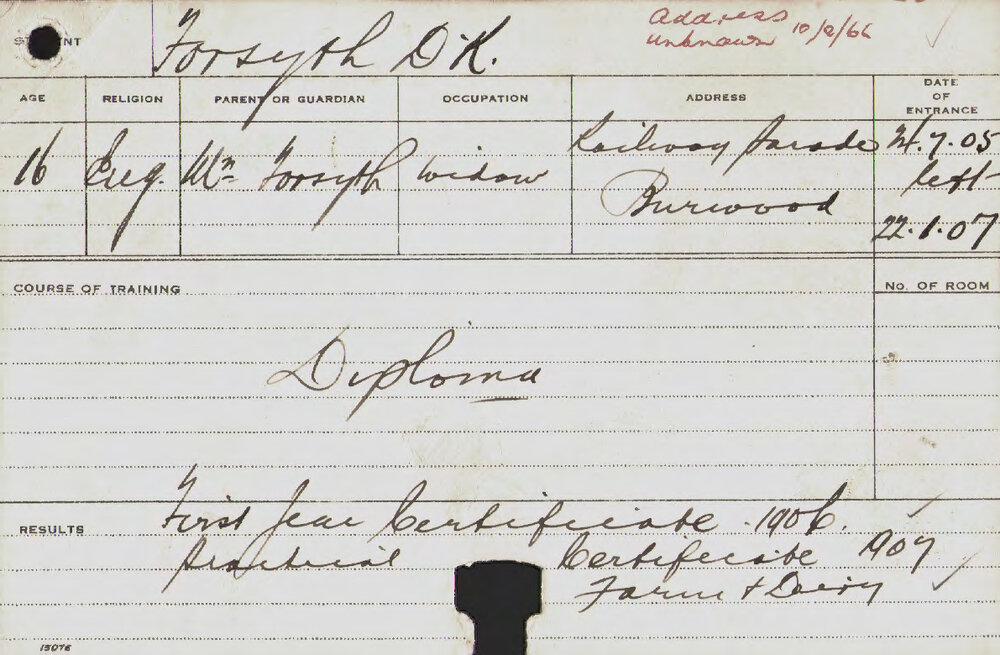 Address
unknown 10/2/66
STUDENT Forsyth D.K.
AGE RELIGION PARENT OR GUARDIAN OCCUPATION ADDRESS DATE OF ENTRANCE
16 Eng. Mrs Forsyth Widow Railway Parade 24.7.05
Burwood left
22.1.07
COURSE OF TRAINING No. OF ROOM
Diploma
RESULTS First Year Certificate 1906.
Practical Certificate 1907
Farm & Dairy
15076